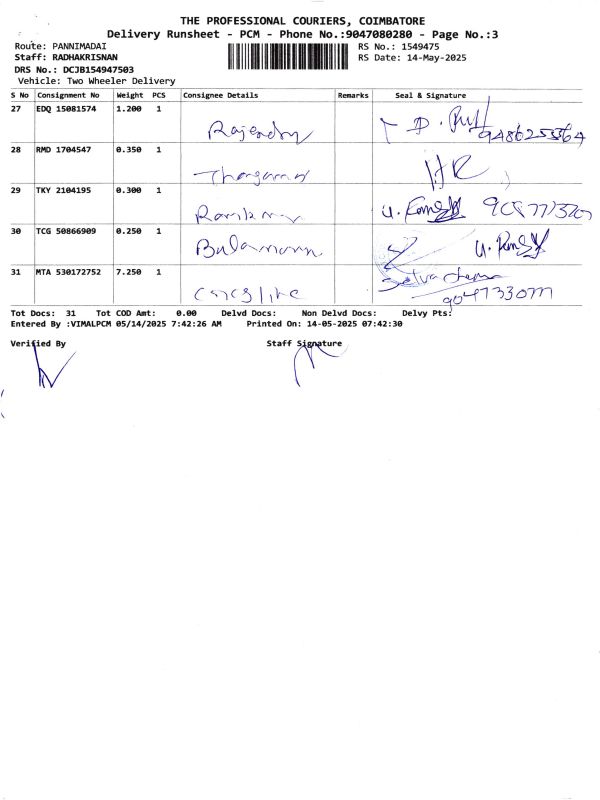 THE PROFESSIONAL COURIERS, COIMBATORE
Delivery Runsheet - PCM - Phone No.:9047080280 - Page No.:3
Route: PANNIMADAI RS No.: 1549475
Staff: RADHAKRISNAN RS Date: 14-May-2025
DRS No.: DCJB154947503
Vehicle: Two Wheeler Delivery
S No Consignment No Weight PCS Consignee Details Remarks Seal & Signature
27 EDQ 15081574 1.200 1
28 RMD 1704547 0.350 1
29 TKY 2104195 0.300 1
30 TCG 50866909 0.250 1
31 MTA 530172752 7.250 1
Tot Docs: 31 Tot COD Amt: 0.00 Delvd Docs: Non Delvd Docs: Delvy Pts:
Entered By :VIMALPCM 05/14/2025 7:42:26 AM Printed On: 14-05-2025 07:42:30
Verified By Staff Signature